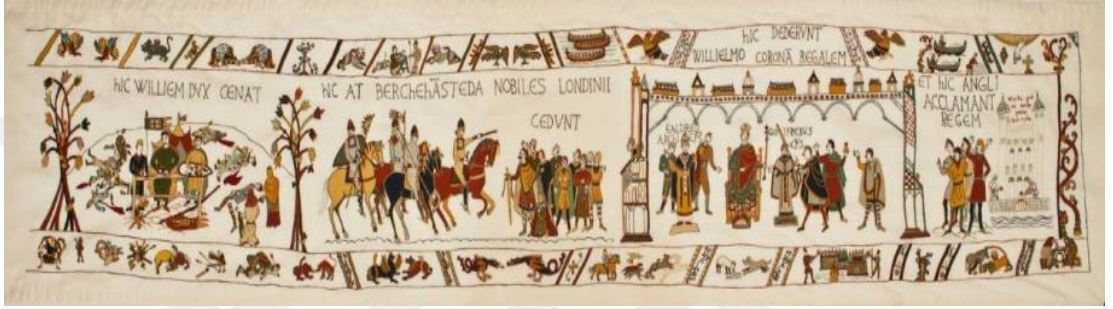 HIC WILLIEM DVX CENAT
HIC AT BERCHEHÃSTEDA NOBILES LONDINII
CEDVNT
HIC DEDERVNT
WILLIELMO CORONÃ REGALEM
ET HIC ANGLI
ACCLAMANT
REGEM